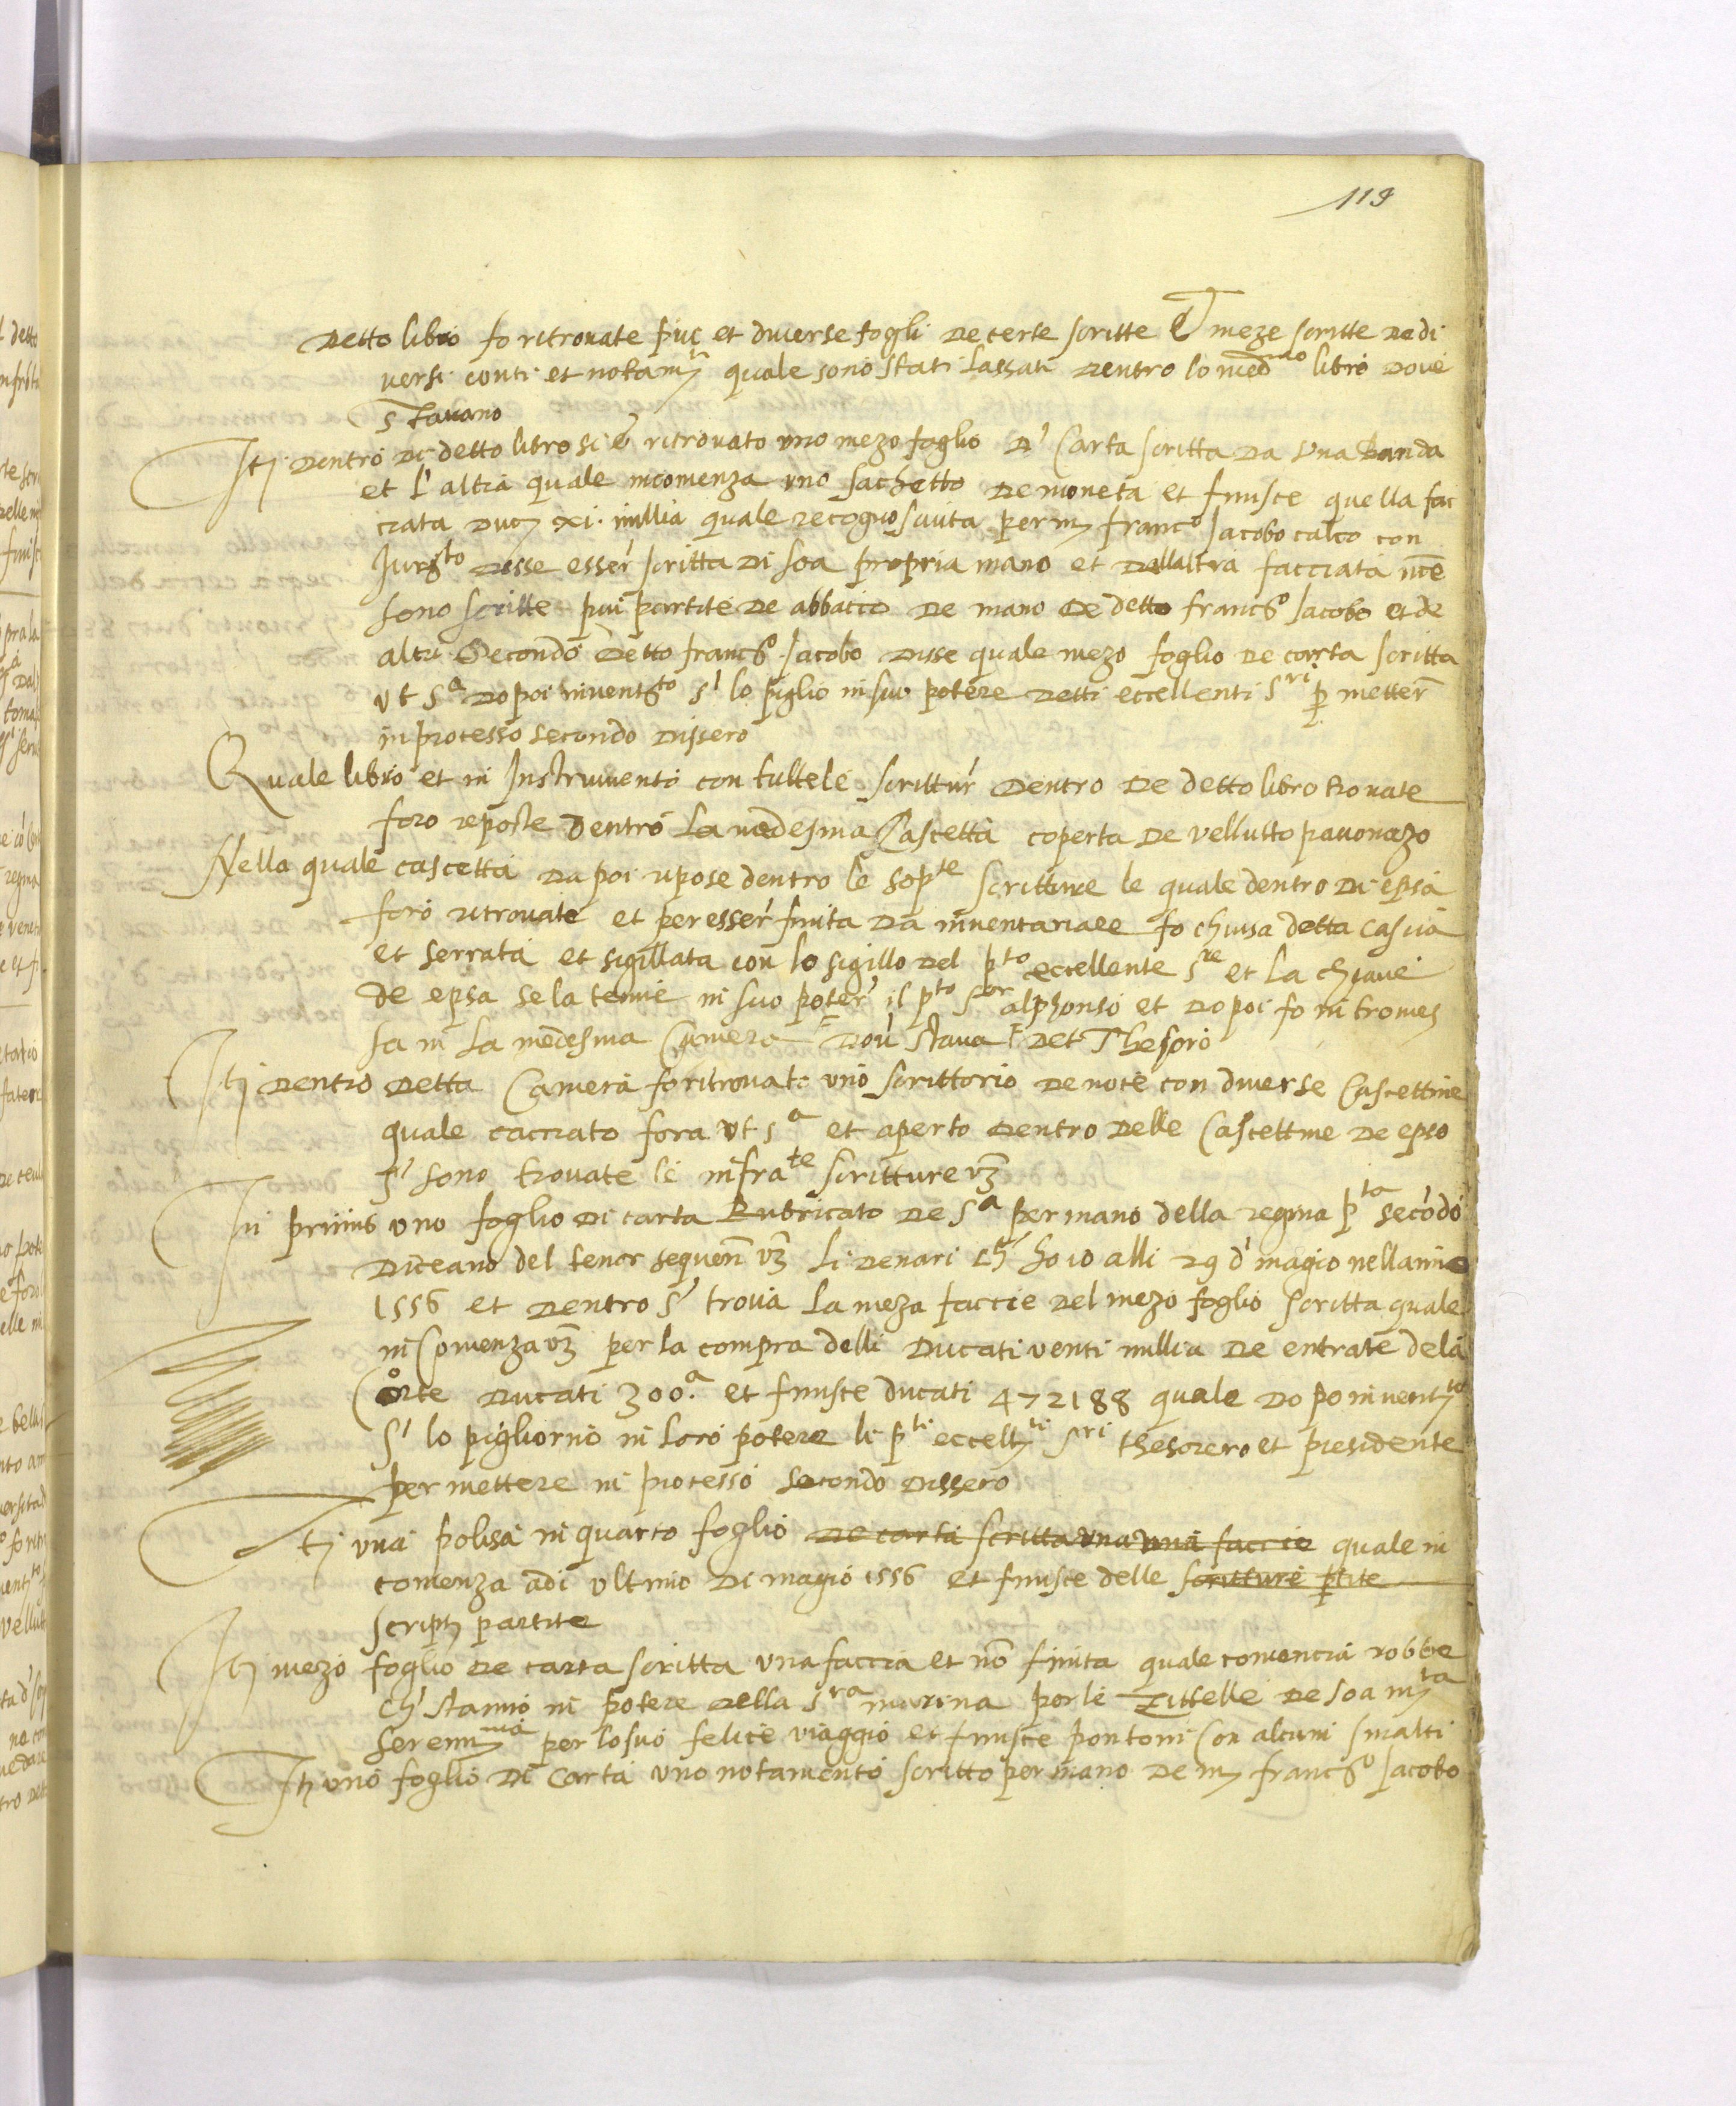 119
Detto libro fo ritrovate piu et diverse fogli de certe scritte et meze scritte de di
versi conti et notam^ti quale sono stati lassati dentro lo med^mo libro dove
stavano
Itj dentro di detto libro si è ritrovato uno mezo foglio d' Carta scritta da una banda
et l'altra quale incomenza uno sachetto de moneta et finisce quella fac
ciata duc xi. millia quale recognosciuta per m franc^o Jacobo calco con
Jur^to disse esser scritta di soa propria mano et dallaltra facciata
sono scritte piu partite de abbacco de mano de detto franc^o Jacobo et de
altri secondo detto franc^o Jacobo disse quale mezo foglio de carta scritta
ut s^a dopoi invent^to s' lo piglio in suo potere detti eccellenti s^ri p metter
in processo secondo dissero
Quale libro et in Instrumento con tutte le scrittur dentro de detto libro trovate
foro reposte dentro la medesma Cascetta coperta de vellutto pavonazo
Nella quale cascetta da poi repose dentro le sop^te scritture le quale dentro di epsa
foro ritrovate et per esser finita da inventariare fo chiusa detta cascia
et serrata et sigillata con lo sigillo del p^to eccellente s^re et la chiave
de epsa se la tenne in suo poter il p^to s^or alphonso et dopoi fo intromes
sa in la medesma Camera dov' stava det Thesoro
Itj dentro detta Camera fo ritrovato uno scrittorio de noce con diverse Cascettine
quale cacciato fora ut s^a et aperto dentro delle Cascettine de epso
s' sono trovate le infra^te scritture vz
In primis uno foglio di carta Rubricato de s^a per mano della regina p^ta secodo
diceano del tenor sequen vz Li denari ch' ho io alli 29 d' magio nellanno
1556 et dentro s' trova la meza faccie del mezo foglio scritta quale
in Comenza vz per la compra delli ducati venti millia de entrate de la
Corte ducati 300.^a et finisce ducati 472188 quale dopo invent^to
s' lo pigliorno in loro potere li p^ti eccell^ti s^ri thesorero et presidente
per mettere in processo secondo dissero
Itj una polisa in quarto foglio de carta scritta una una faccie quale in
comenza adi ultimo di magio 1556 et finisce delle scritture ptite
script partite
Itj mezo foglio de carta scritta una faccia et no finita quale comencia robbe
ch' stanno in potere della s^ra marina per le Zittelle de soa m^ta
seren^ma per lo suo felice viaggio et finisce pontoni con alcuni smalti
Itj uno foglio di carta uno notamento scritto per mano de m franc^o Jacobo